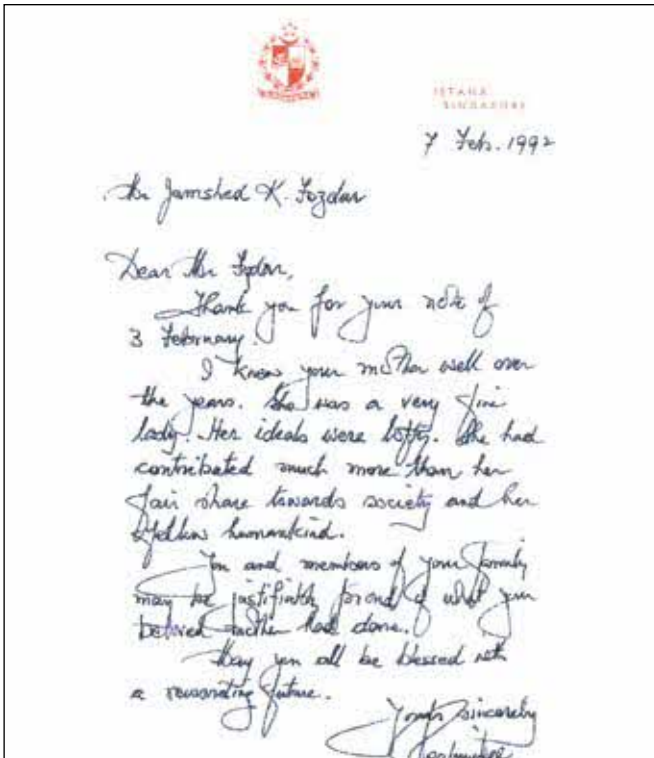 ISTANA
SINGAPORE
7 Feb. 1992
Mr Jamshed K. Fozdar
Dear Mr Fozdar,
Thank you for your note of
3 February.
I knew your mother well over
the years. She was a very fine
lady. Her ideals were lofty. She had
contributed much more than her
fair share towards society and her
fellow humankind.
You and members of your family
may be justifiably proud of what your
beloved mother had done.
May you all be blessed with
a rewarding future.
Yours sincerely